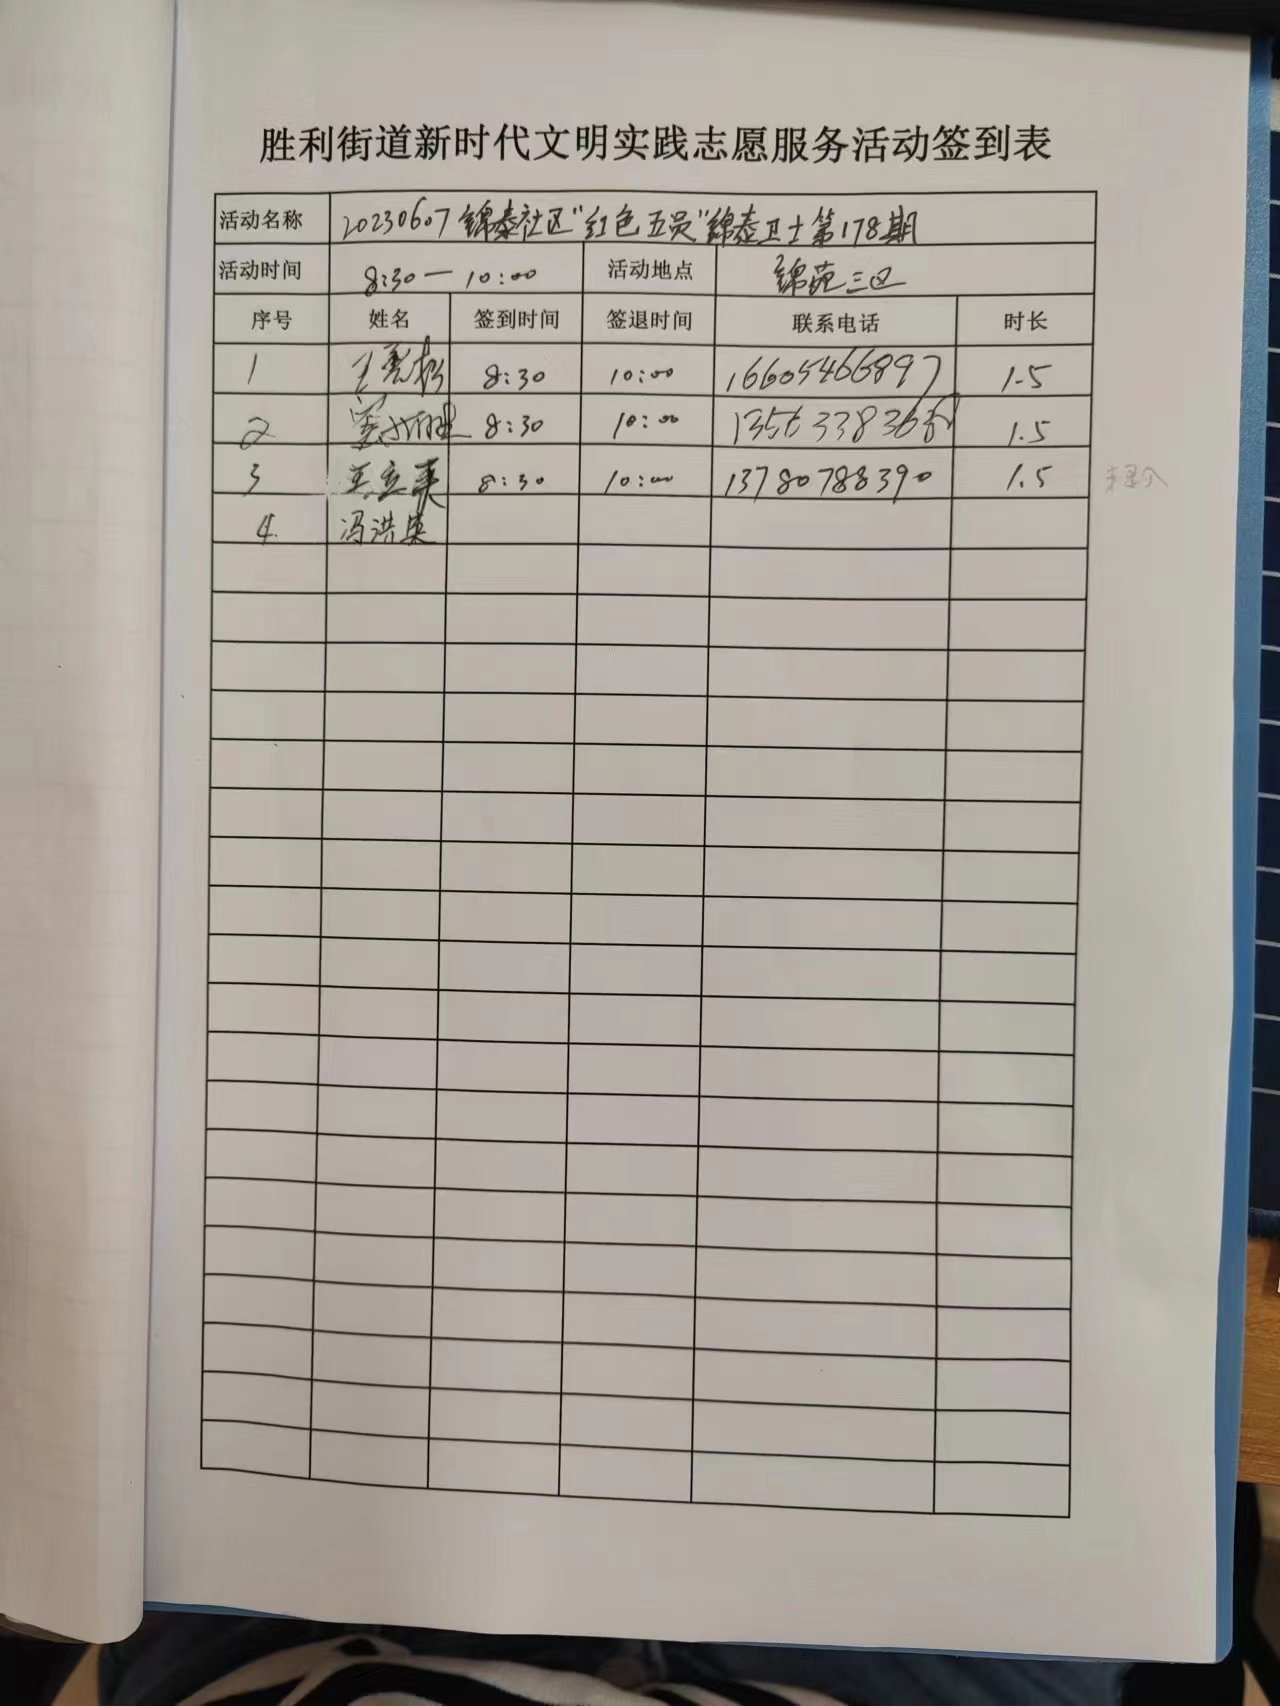 胜利街道新时代文明实践志愿服务活动签到表
活动名称 20230607锦泰社区“红色五员”锦泰卫士第178期
活动时间 8:30—10:00 活动地点 锦苑三区
序号 姓名 签到时间 签退时间 联系电话 时长
1 8:30 10:00 16605466897 1.5
2 8:30 10:00 1.5
3 8:30 10:00 13780788390 1.5
4. 冯洪英